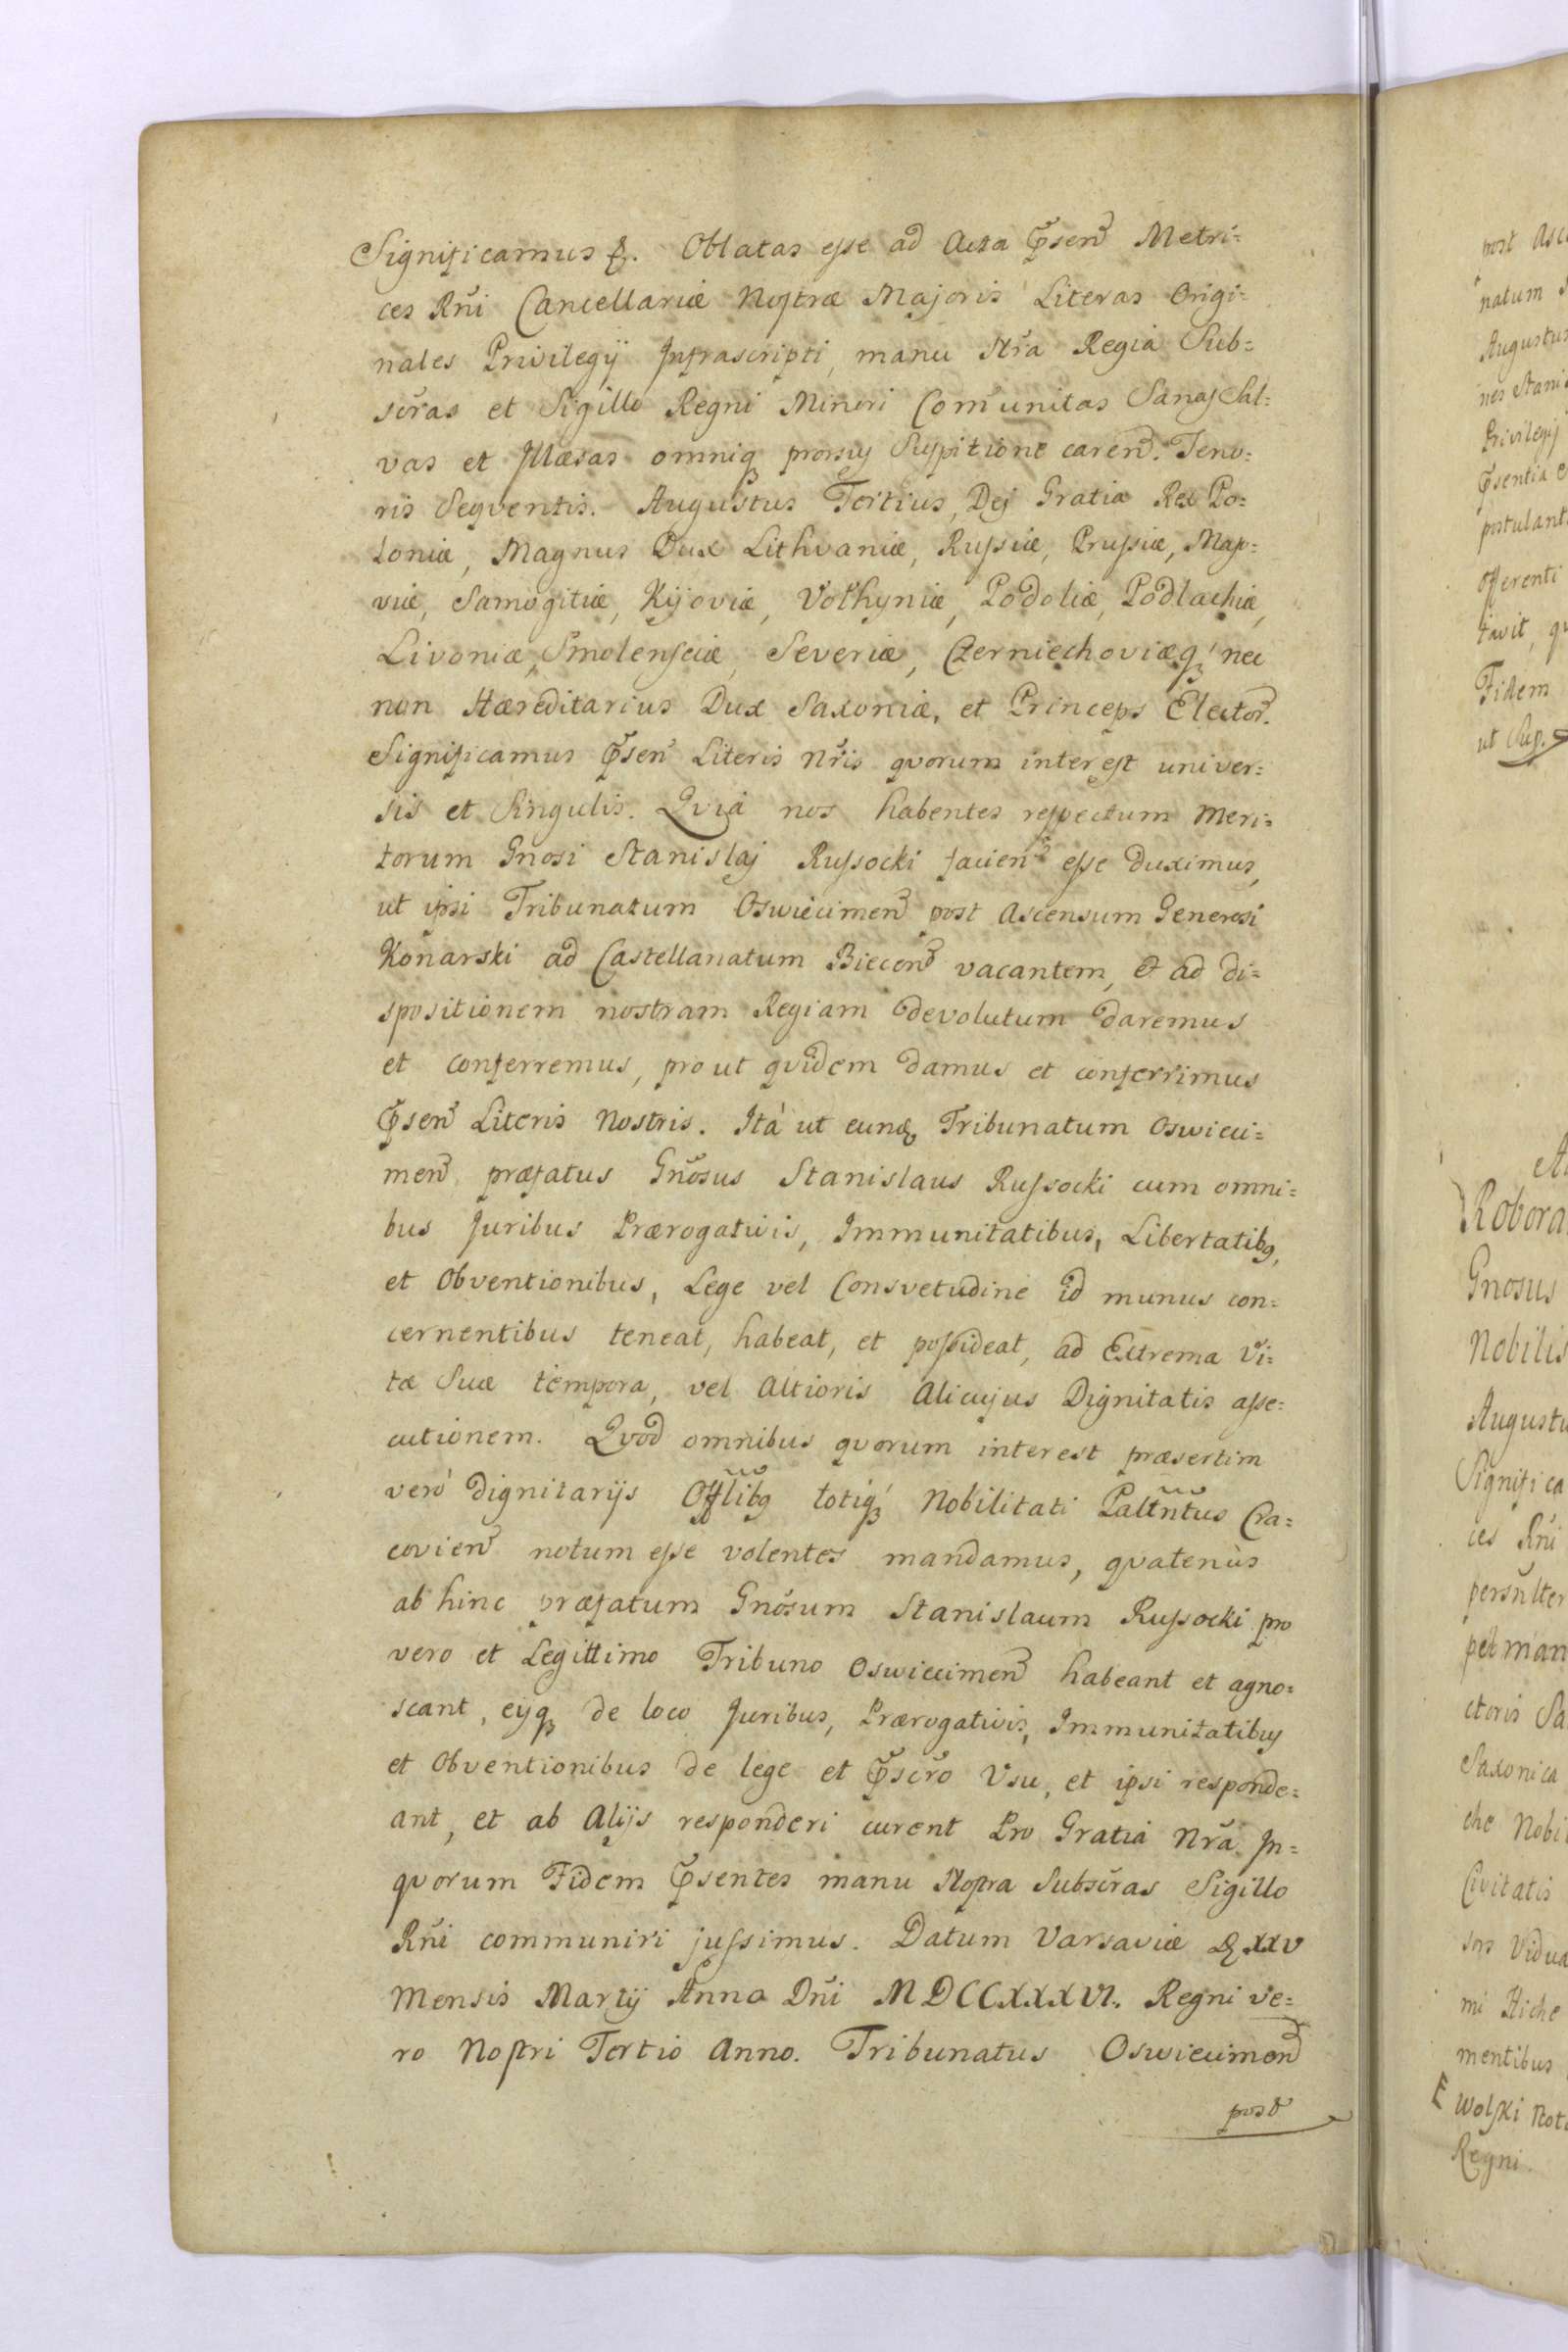 Significamus &. Oblatas esse ad Acta Psen Metri=
ces Rni Cancellariæ Nostræ Majoris Literas Origi=
nales Privilegij Infrascripti, manu Nra Regia Sub=
scras et Sigillo Regni Minori Comunitas Sanas Sal=
vas et Illæsas omniq prorsus Suspitione caren. Teno=
ris Seqventis. Augustus Tertius, Dej Gratia Rex Po=
loniæ, Magnus Dux Lithvaniæ, Russiæ, Prussiæ, Maso=
viæ, Samogitiæ, Kijoviæ, Volhyniæ, Podoliæ, Podlachiæ,
Livoniæ, Smolensciæ, Severiæ, Czerniechoviæq nec
non Hæreditarius Dux Saxoniæ, et Princeps Elector.
Significamus Psen Literis Nris qvorum interest univer=
sis et Singulis. Qvia nos habentes respectum Meri=
torum Gnosi Stanislaj Russocki facien esse duximus,
ut ipsi Tribunatum Oswiecimen post Ascensum Generosi
Konarski ad Castellanatum Biecen vacantem, et ad di=
spositionem nostram Regiam devolutum daremus
et conferremus, pro ut qvidem damus et conferrimus
Psen Literis Nostris. Ità ut eund Tribunatum Oswieci=
men præfatus Gnosus Stanislaus Russocki cum omni=
bus Juribus Prærogativis, Immunitatibus, Libertatibq,
et Obventionibus, Lege vel Consvetudine id munus con=
cernentibus teneat, habeat, et possideat, ad Extrema Vi=
tæ Suæ tempora, vel Altioris Alicujus Dignitatis asse=
cutionem. Qvod omnibus qvorum interest præsertim
verò dignitarijs Offlibq totiq Nobilitati Paltntus Cra=
covien notum esse volentes mandamus, qvatenùs
ab hinc præfatum Gnosum Stanislaum Russocki pro
vero et Legittimo Tribuno Oswiecimen habeant et agno=
scant, eijq de loco Juribus, Prærogativis, Immunitatibus
et Obventionibus de lege et Pscro Usu, et ipsi responde=
ant, et ab Alijs responderi curent Pro Gratia Nra. In=
qvorum Fidem Psentes manu Nostra Subscras Sigillo
Rni communiri jussimus. Datum Varsaviæ D XXV
Mensis Martij Anno Dni MDCCXXXVI. Regni ve=
ro Nostri Tertio Anno. Tribunatus Oswiecimen
post
post Asce
natum
Augustus
nes Stanis
Privilegij
Psentia
postulant
Offerenti
tavit, qv
Fidem
ut Sup.
Robora
Gnosus
Nobilis
Augustu
Significa
ces Rni
persnlter
pet man
ctoris Sa
Saxonica
che Nobi
Civitatis
sors Vidua
mi Hiche
mentibus
Wolski Not
Regni.